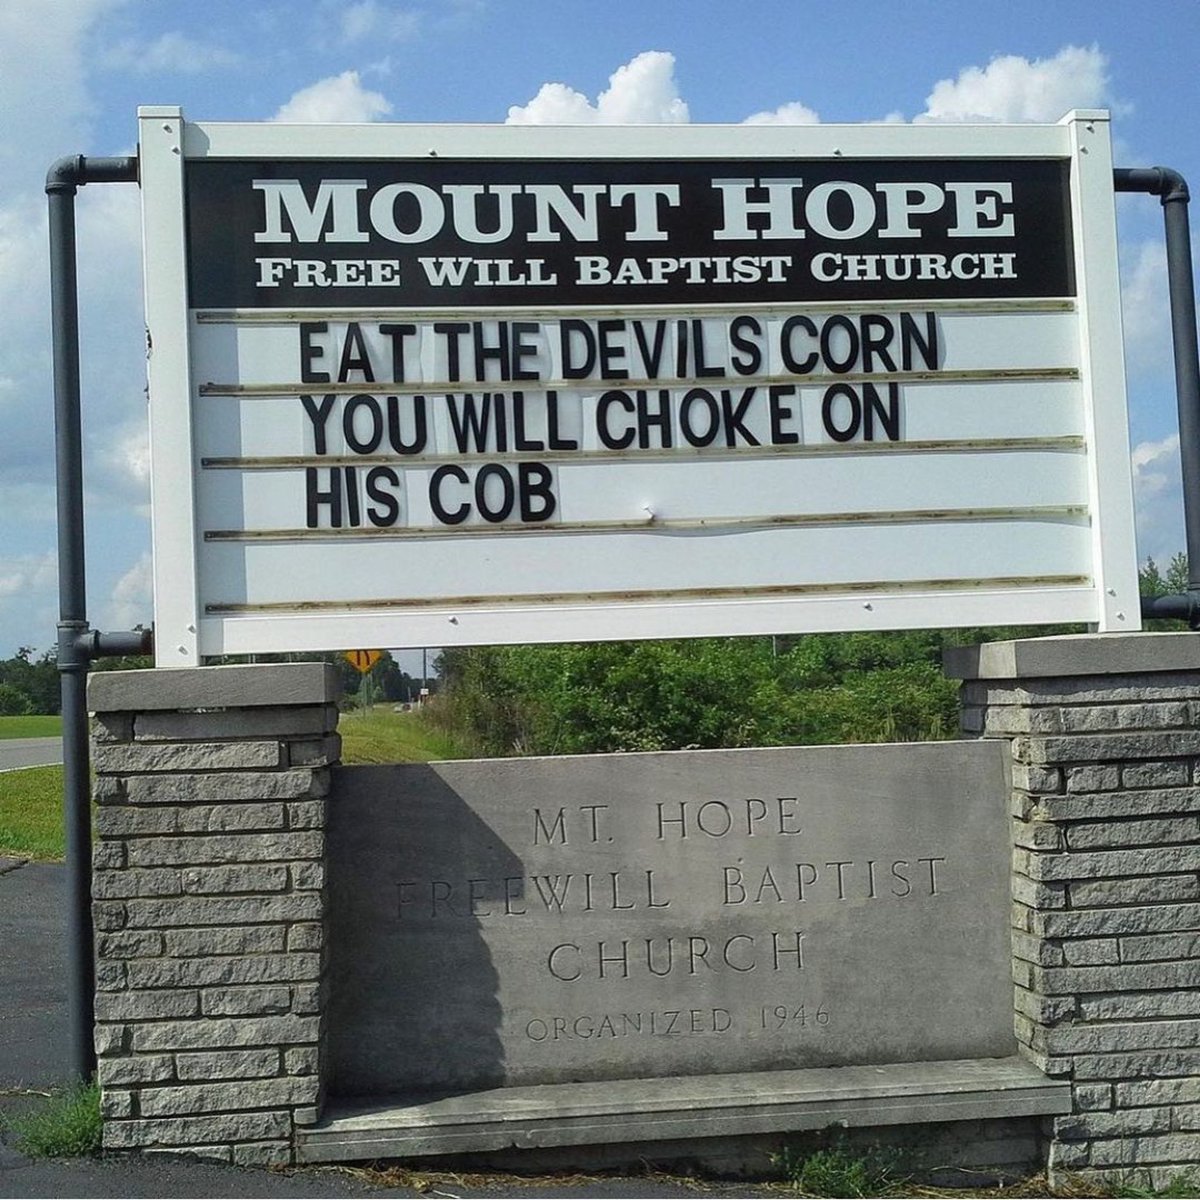 MOUNT HOPE
FREE WILL BAPTIST CHURCH
EAT THE DEVILS CORN
YOU WILL CHOKE ON
HIS COB
MT. HOPE
FREEWILL BAPTIST
CHURCH
ORGANIZED 1946